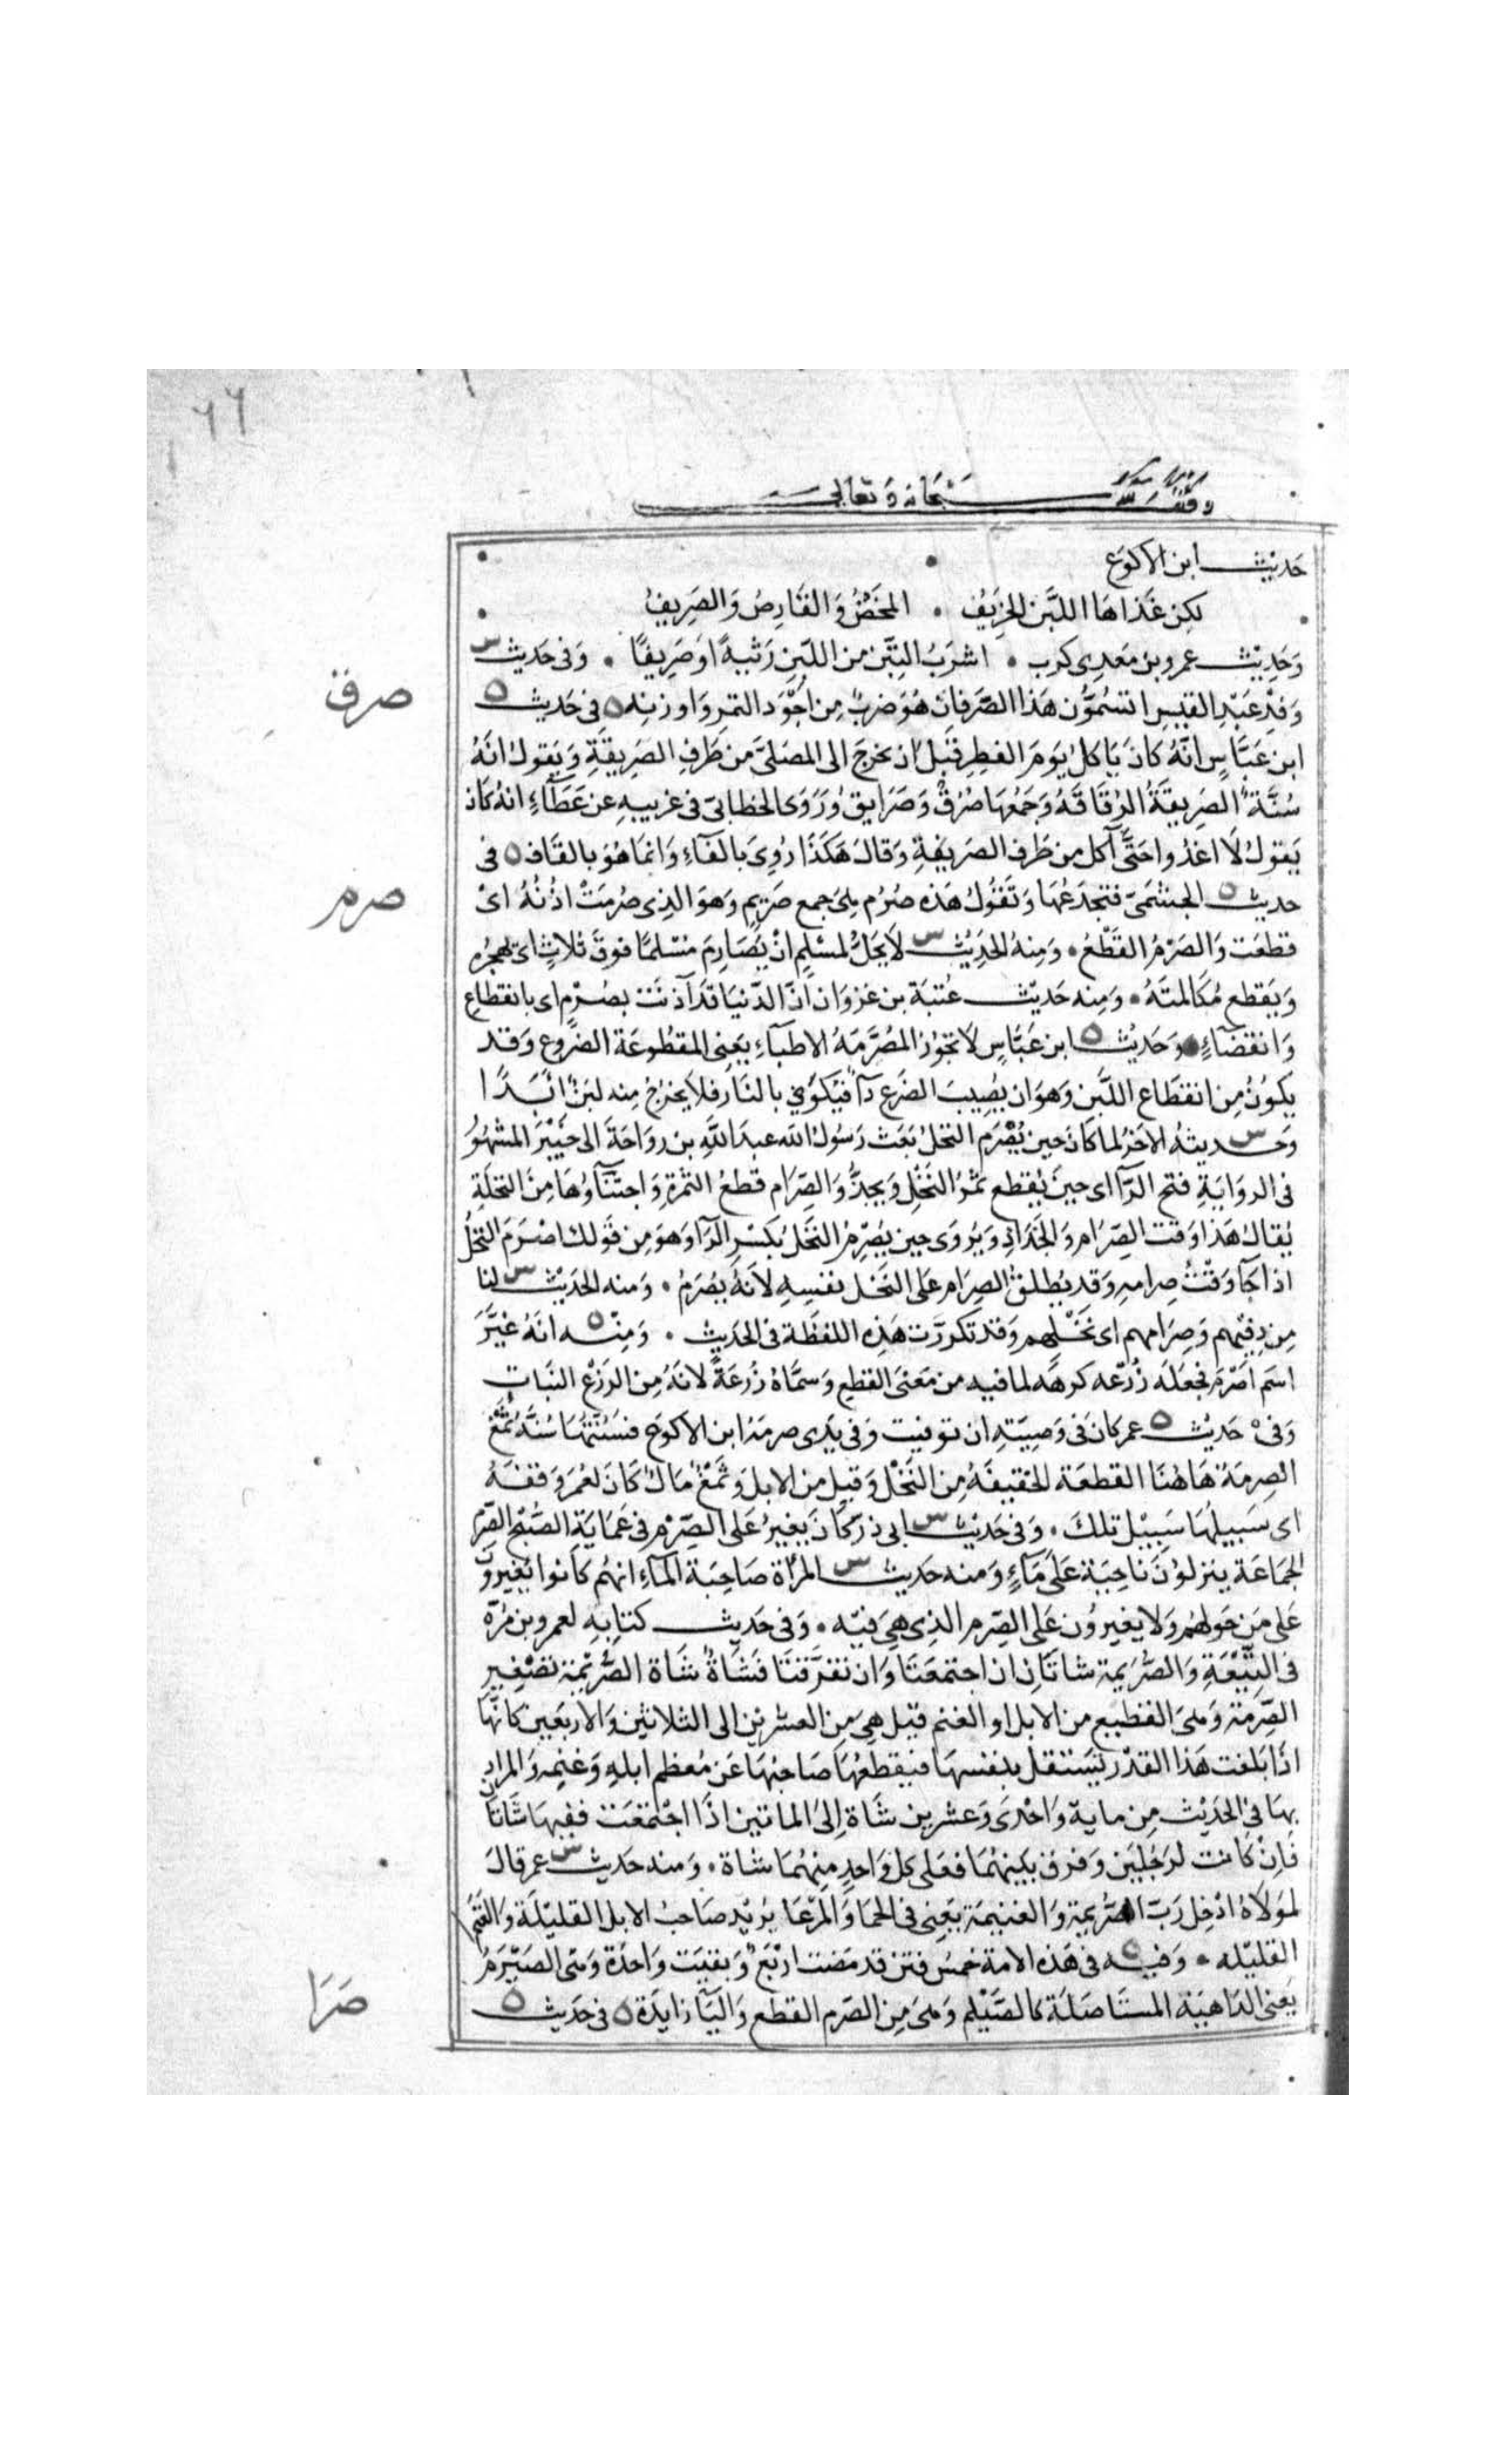 ٦٦
وقف لله سبحانه وتعالى
حَديث ابن الاكوَع
لكِن غَذاهَا اللبَّن الخِرَيفُ ۰ المخَضُ وَالقَارِصُ وَالصَرِيفُ
وَحَديث عمرو بن مَعدِى كرِب ۰ اشرَبُ التِبّن من اللبَن رَثيةً اوَ صَرِيفًا ۰ وَفى حَديث س
صرق
وَفدِ عَبْدِ القيسِ اتسُمُّون هَذا الصَّرفان هُوَ ضربٌ مِن اجْوَد التمرِ وَاوزنِه ٥ فى حَديث ٥
ابن عَبَّاسٍ انَّهُ كانَ يَاكلُ يوَمَ الفطِر قَبلَ ان يخرجَ الى المصَلىَّ من طَرفِ الصَرِيقَةِ وَيَقولُ انهُ
سُنَّةٌ الصَرِيقَةُ الرُّقَاقَهُ وَجَمْعُهَا صُرُقٌ وَصَرَايق وَرَوَى الخطابىّ فى غريبهِ عن عَطَآءٍ انهُ كانَ
يَقولُ لَا اغدُوا حَتَّى آكل من طَرف الصَريفَةِ وَقالَ هَكَذَا رُوِىَ بالفَآءِ وَانمَا هُوَ بالقَاف ٥ فى
صرم
حديث ٥ الجشَمىّ فتجدَعُهَا وَتَقُولُ هَذه صُرُم هِىَ جمع صَرِيمٍ وَهوَ الذِى صُرمَتْ اذُنُهُ اىْ
قطعَت وَالصَرْمُ القَطْعُ ۰ وَمِنهُ الحَدِيْث س لاَ يحَلُّ لمسْلِم انْ يُصَارِمَ مُسْلمًا فوقَ ثلاثٍ اى يهجُرهُ
وَيَقطع مُكالمتَهُ ۰ وَمِنه حَديث عتبَة بن غَزوَان انَّ الدّنيَا قَد آذنَتْ بصُرْمٍ اى بانقطَاعٍ
وَانقضَآءٍ ۰ وَحَديْث ٥ ابن عَبَّاسٍ لاَ تجوُز المُصَرَّمَهُ الاطبَآءِ يعَنى المقطُوعَة الضُروع وَقد
يكوُنُ مِن انقطَاع اللَّبَن وَهوَ ان يصُيبَ الضَرع دَآٌ فيُكوَى بالنَار فلاَ يخرُجُ مِنه لبنٌ ابَدًا
وَحديثهُ س الاخَر لما كَانَ حين يُصْرم النخلُ بَعَث رَسُولُ الله عبدَ اللَّهِ بن رَواحَةَ الى خَيْبَرَ المشَهُورُ
فى الروَايَةِ فتح الرّآ اى حينَ يُقطع ثمرُ النَخْلِ وَيجدُّ وَالصِّرَام قَطعُ الثمَرةِ وَاجتنَآؤهَا مِنَ النخلَةِ
يُقالُ هَذا وَقت الصِّرَامِ وَالجَدَادِ وَيرُوَى حِين يصُرِمُ النخَلُ بكَسْرِ الرَآ وَهوَ مِن قَولكَ اصْرَمَ النخْلُ
اذا جَآ وَقْتُ صِرامهِ وَقد يطُلقُ الصِرَام عَلى النخَل نفسِهِ لاَنهُ يصُرَمُ ۰ وَمنه الحَديْث س لنا
مِن دِفئِهم وَصِرَامهم اى نَخْلِهم وَقد تكررَّت هَذِه اللفظَة فى الحَديث ۰ وَمِنْه ٥ انهُ غيَّرَ
اسَم اصَرْم فجعَلَه زُرعه كرهَه لما فيه من مَعنَى القطعِ وَسمَّاهُ زُرعَةً لانَهُ مِن الزرَعْ النبَاتِ
وَفى حَديْث ٥ عمر كانَ فى وَصِيَّتهِ ان توفيت وَفى يَدِى صرمَةُ ابن الاكوعَ فسُنَّتُهَا سُنَّةُ ثمَغْ
الصِرمَةُ هَاهُنَا القطعَة الخَفيفَةُ مِن النَخْل وَقيل من الابل وَثمَغْ مَالٌ كانَ لعُمَر وَقفَهُ
اى سَبِيلهَا سَبِيْل تلكَ ۰ وَفى حَديْث س ابى ذر كَانَ يغيرُ عَلى الصِّرْم فى عَمايَةِ الصُّبْح الصِّرْم
الجمَاعَة ينزلوُنَ ناحِيَة عَلَى مَآءٍ وَمنه حَديث س المرَأة صَاحِبَة المآءِ انهُم كانوُا يُغيروُن
عَلى مَن حَولهُم وَلا يغيروُن عَلى الصِّرم الذِى هِىَ فيْه ۰ وَفى حَديث كتابِهِ لعمرو بن مُرَّة
فى التِّيْعَةِ وَالصُّرَيمة شاتَانِ ان اجتمعَتَا وَان تفرَّقتَا فشَاةٌ شاة الصُّرَيْمة تصَغير
الصِّرمَة وَهىَ القطيع من الابل او الغنم قيل هِىَ مِن العشرين الى الثلاثينَ وَالاربَعين كانهَّا
اذَا بَلغت هَذا القدْر تسَتقل بنفسهَا فيقطعُهَا صَاحبُهَا عَن مُعظم ابلهِ وَغنمِه وَالمراد
بهَا فى الحَديْث مِن مايةٍ وَاحْدى وَعشرين شَاة اِلىَ الماتين اذَا اجْتمعَت ففيهَا شَاتان
فَاِنْ كَانت لرَجُليَن وَفرق بيَنهُمَا فعَلى كل وَاحدٍ منِهُمَا شاة ۰ وَمنه حَديث س عمر قالَ
لموَلاَهُ ادْخِل رَبّ الصُّرَيمة وَالغنيمَة يعَنى فى الحمَا وَالمرْعَا يُريْد صَاحبُ الابل القليْلَة وَالغنَم
القليْله ۰ وَفيه ٥ فى هَذه الامة خمسُ فتن قد مَضت ارْبَعٌ وَبقيَت وَاحدَة وَهى الصَيْرَمُ
صَرَا
يَعنى الدَاهيَة المستَاصَلة كالصَّيْلم وَهىَ مِن الصَرم القطَع وَاليَآ زايدَة ٥ فى حَديث ٥